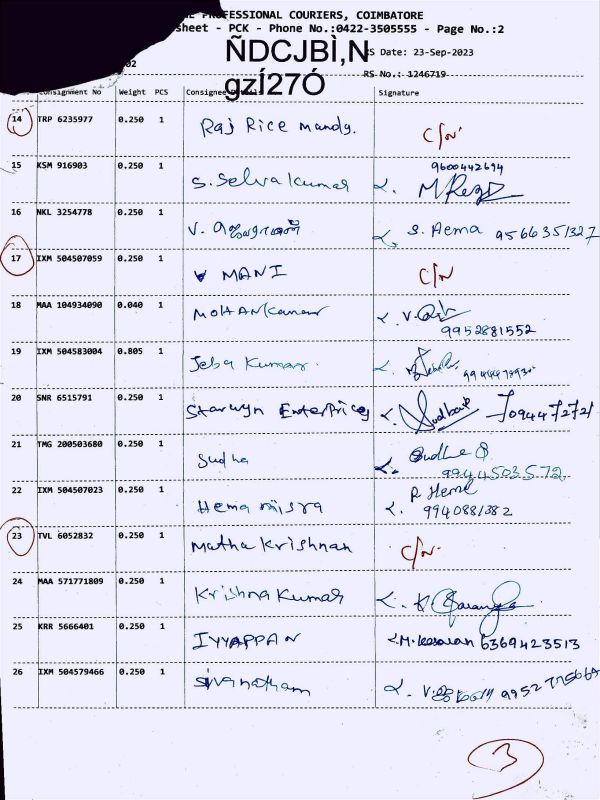 PROFESSIONAL COURIERS, COIMBATORE
sheet - PCK - Phone No.:0422-3505555 - Page No.:2
ÑDCJBÌ,N
RS Date: 23-Sep-2023
02
gzÍ27Ó
RS No.: 1246719
Consignment No Weight PCS Consignee Details Signature
14 TRP 6235977 0.250 1 Raj Rice mandy. C/N
15 KSM 916903 0.250 1 S. Selva kumar 9600442694
16 NKL 3254778 0.250 1 V. S. Hema 9566351327
17 IXM 504507059 0.250 1 V MANI C/N
18 MAA 104934090 0.040 1 MOHAN Kumar V.
9952881552
19 IXM 504583004 0.805 1 Jeba Kumar
20 SNR 6515791 0.250 1 Starwyn Enterprices
21 TMG 200503680 0.250 1 Sudha Sudha
9944503572
22 IXM 504507023 0.250 1 Hema misra P. Hema
9940881382
23 TVL 6052832 0.250 1 Matha Krishnan C/N
24 MAA 571771809 0.250 1 Krishna Kumar K
25 KRR 5666401 0.250 1 IYYAPPAN M. Kesavan 6369423513
26 IXM 504579466 0.250 1 Sivanatham
3